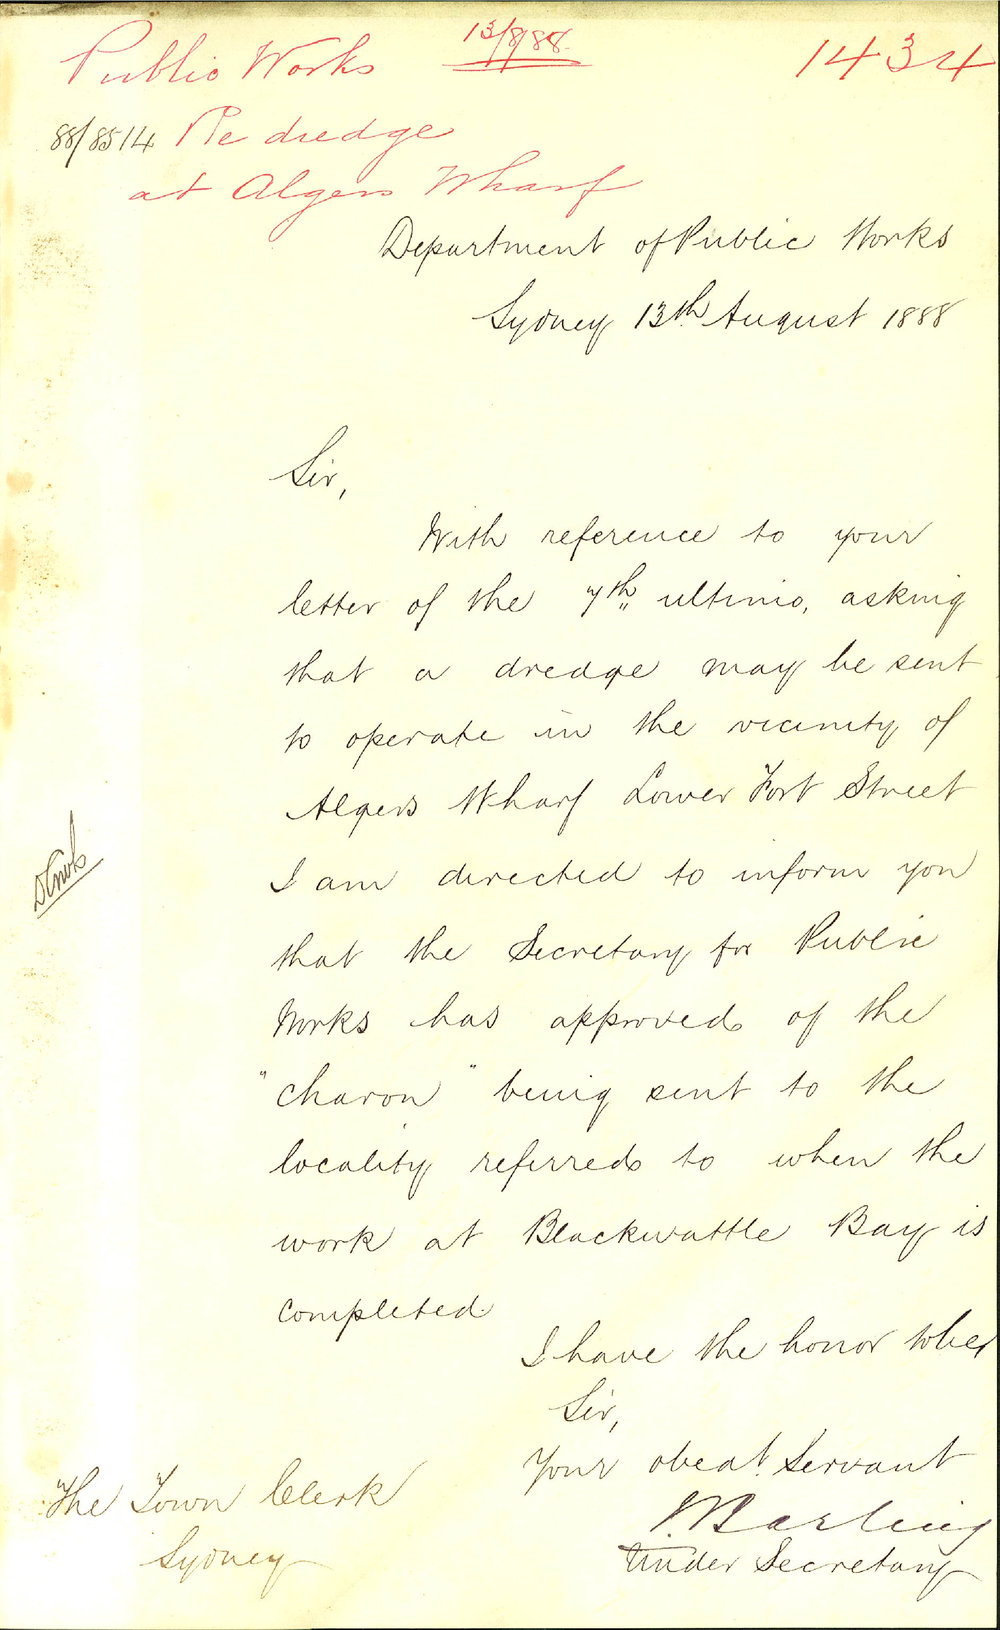 Public Works 13/8/88 1434
88/8514 Re dredge
at Algers Wharf
Department of Public Works
Sydney 13th August 1888
Sir,
With reference to your
letter of the 7th ultimo, asking
that a dredge may be sent
to operate in the vicinity of
Algers Wharf Lower Fort Street
I am directed to inform you
that the Secretary for Public
Works has approved of the
"Charon" being sent to the
locality referred to when the
work at Blackwattle Bay is
completed.
I have the honor to be
Sir,
Your obedt. Servant
Barling
Under Secretary
The Town Clerk
Sydney